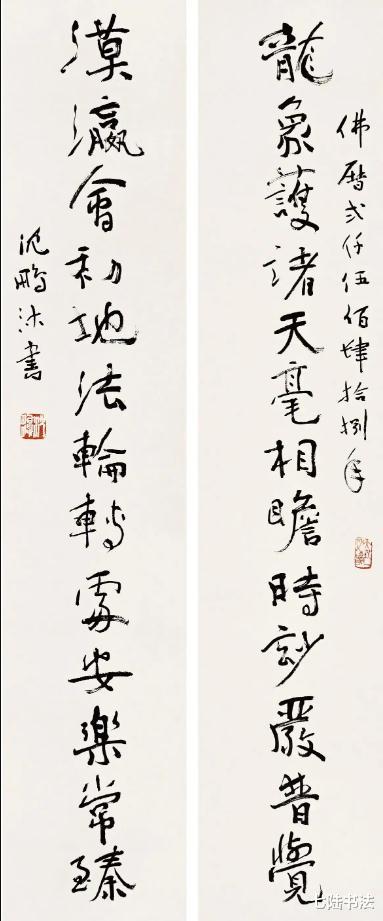 佛曆弍仟伍佰肆拾捌年
龍象護諸天毫相瞻時玅嚴普覺
漢瀛會初地法輪轉處安樂常臻
沈鵬沐書
七陆书法